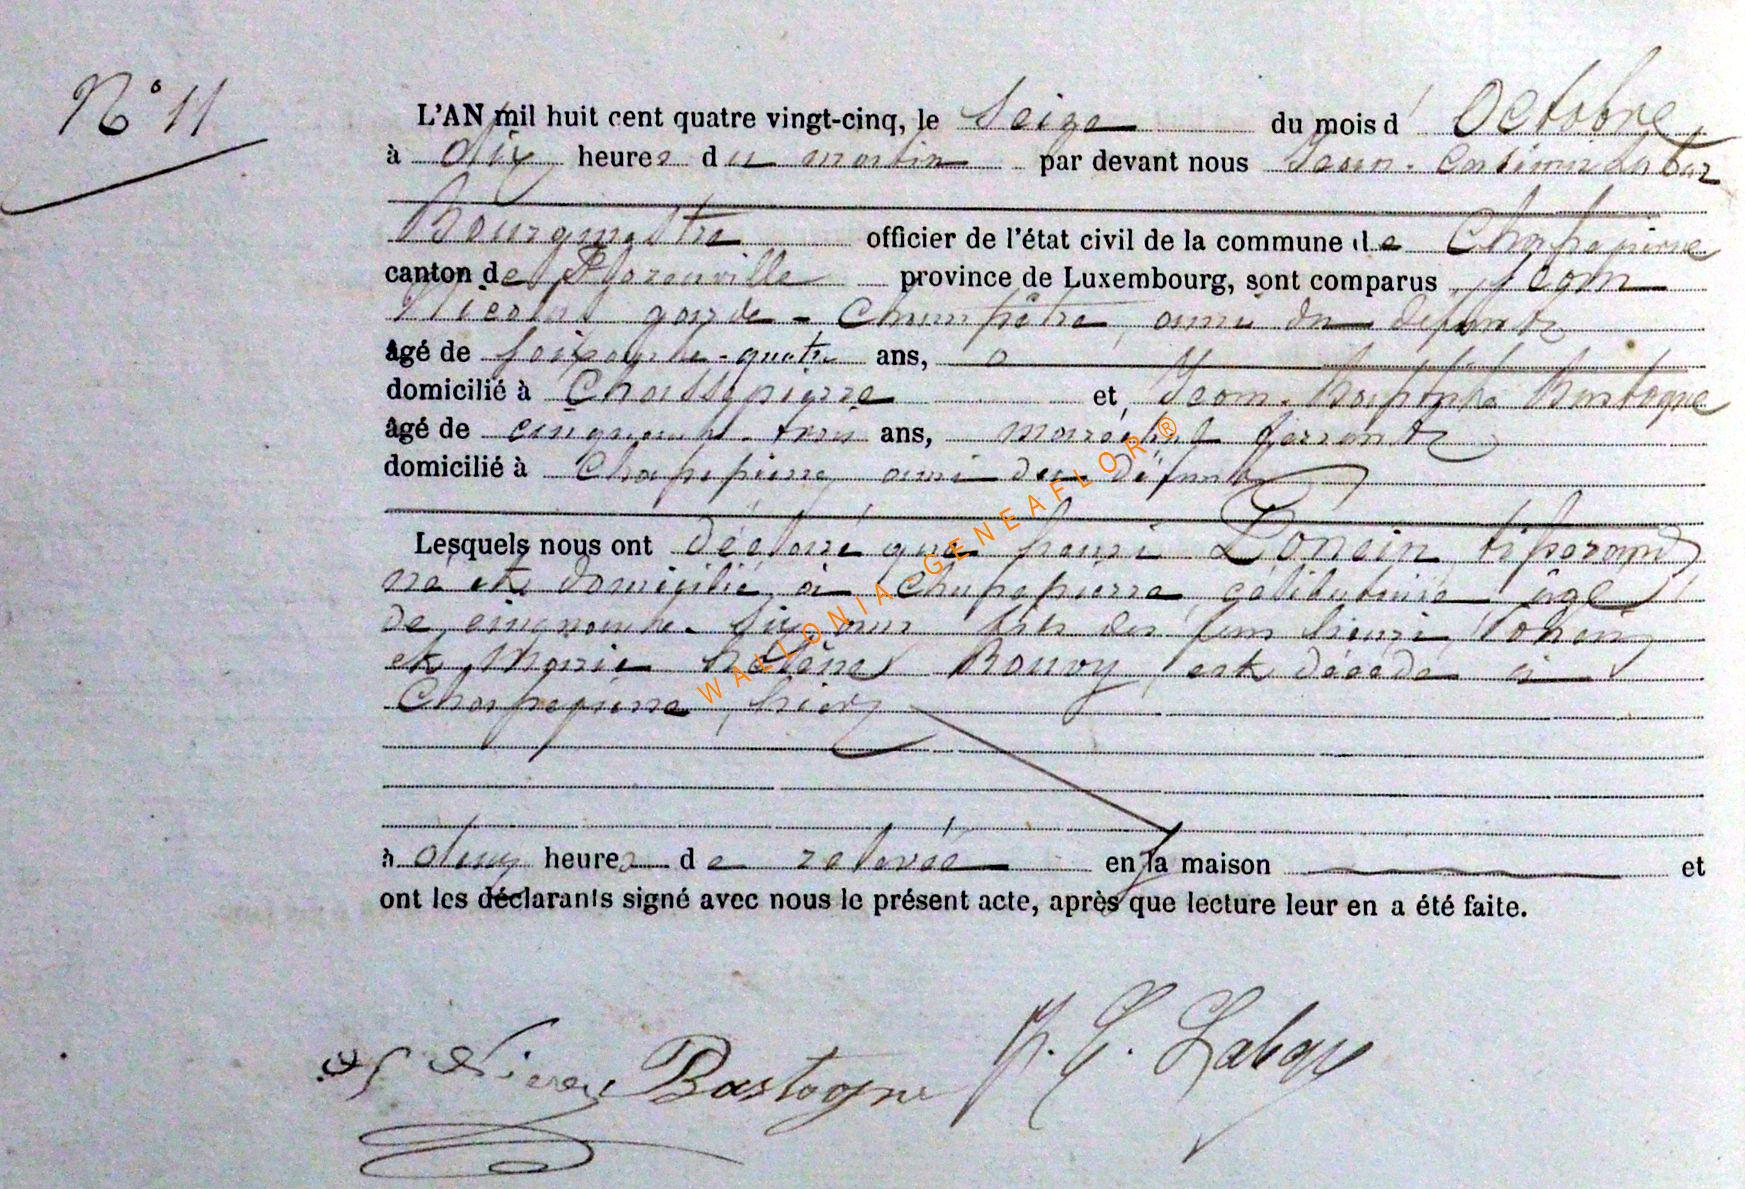 N° 11
L'AN mil huit cent quatre vingt-cinq, le Seize du mois d' Octobre
à dix heures du matin par devant nous Jean-Casimir Labbez
Bourgmestre officier de l'état civil de la commune de Chassepierre
canton de Florenville province de Luxembourg, sont comparus Jean
Nicolas garde-Champêtre, ami du défunt
âgé de soixante-quatre ans,
domicilié à Chassepierre et, Jean-Baptiste Bastogne
âgé de cinquante-trois ans, maréchal ferrant
domicilié à Chassepierre ami du défunt
Lesquels nous ont déclaré que henri Poncin tisserand
né et domicilié à Chassepierre, célibataire âgé
de cinquante-six ans fils des feus henri Poncin
et Marie hélène Bouvy, est décédé à
Chassepierre, hier
à deux heures de relevée en la maison et
ont les déclarants signé avec nous le présent acte, après que lecture leur en a été faite.
Bastogne
WALLONIA-GENEAFLOR®